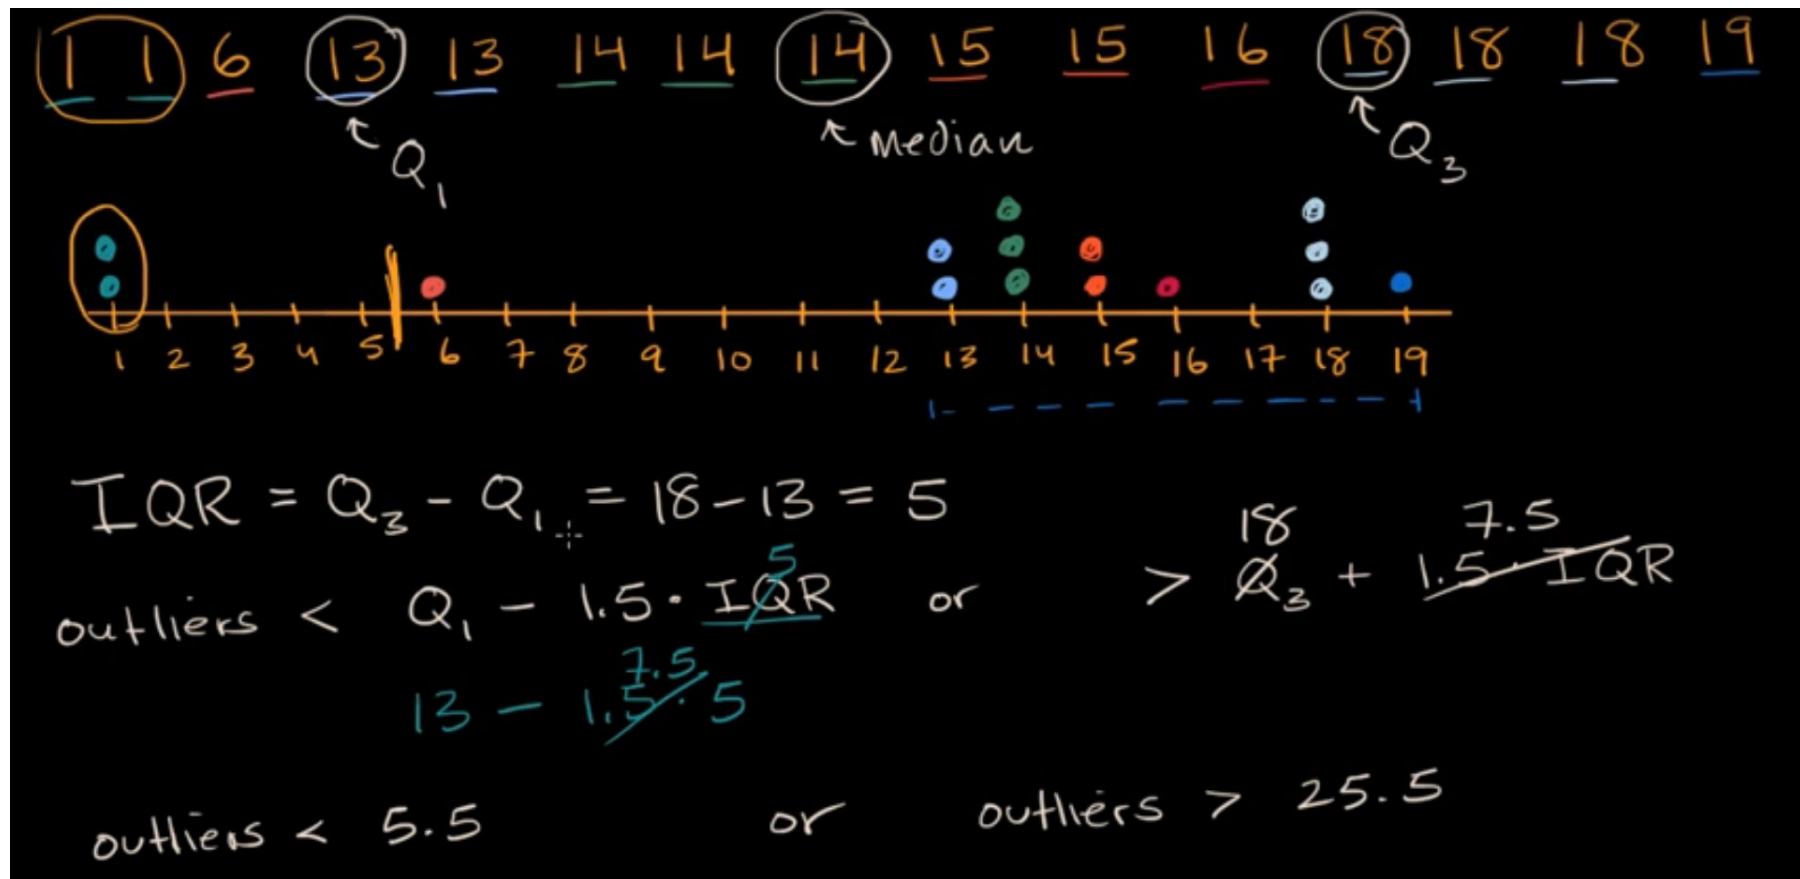 1 1 6 13 13 14 14 14 15 15 16 18 18 18 19
Q1
Median
Q3
1 2 3 4 5 6 7 8 9 10 11 12 13 14 15 16 17 18 19
IQR = Q3 - Q1 = 18 - 13 = 5
5
18 7.5
outliers < Q1 - 1.5 · IQR or > Q3 + 1.5 · IQR
7.5
13 - 1.5 · 5
outliers < 5.5 or outliers > 25.5